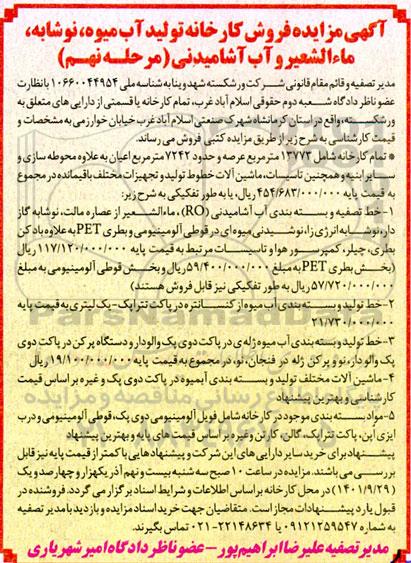 آگهی مزایده فروش کارخانه تولید آب میوه، نوشابه،
ماءالشعیر و آب آشامیدنی (مرحله نهم)
مدیر تصفیه و قائم مقام قانونی شرکت ورشکسته شهد وینا به شناسه ملی ۱۰۶۶۰۰۴۴۹۵۴ با نظارت
عضو ناظر دادگاه شعبه دوم حقوقی اسلام آباد غرب، تمام کارخانه یا قسمتی از دارایی های متعلق به
ورشکسته، واقع در استان کرمانشاه شهرک صنعتی اسلام آباد غرب خیابان خوارزمی به مشخصات و
قیمت کارشناسی به شرح زیر از طریق مزایده کتبی فروش می رساند.
* تمام کارخانه شامل ۱۳۷۷۳ مترمربع عرصه و حدود ۷۲۴۲ مترمربع اعیان به علاوه محوطه سازی و
سایر ابنیه و همچنین تاسیسات، ماشین آلات خطوط تولید و تجهیزات مختلف باقیمانده در مجموع
به قیمت پایه ۴۵۴/۶۸۳/۰۰۰/۰۰۰ ریال، یا به طور تفکیکی به شرح زیر:
۱- خط تصفیه و بسته بندی آب آشامیدنی (RO)، ماءالشعیر از عصاره مالت، نوشابه گاز
دار، نوشابه انرژی زا، نوشیدنی میوه ای در قوطی آلومینیومی و بطری PET به علاوه باد کن
بطری، چیلر، کمپرسور هوا و تاسیسات مرتبط به قیمت پایه ۱۱۷/۱۲۰/۰۰۰/۰۰۰ ریال
(بخش بطری PET به مبلغ ۵۹/۴۰۰/۰۰۰/۰۰۰ ریال و بخش قوطی آلومینیومی به مبلغ
۵۷/۷۲۰/۰۰۰/۰۰۰ ریال به طور تفکیکی نیز قابل فروش هستند)
۲- خط تولید و بسته بندی آب میوه از کنسانتره در پاکت تتراپک یک لیتری به قیمت پایه
۲۱/۷۳۰/۰۰۰/۰۰۰
۳- خط تولید و بسته بندی آب میوه ژله ی در پاکت دوی پک والودار و دستگاه پر کن در پاکت دوی
پک والودار، نو و پر کن ژله در فنجان، نو، در مجموع به قیمت پایه ۱۹/۱۰۰/۰۰۰/۰۰۰ ریال
۴- ماشین آلات مختلف تولید و بسته بندی آبمیوه در پاکت دوی پک و غیره بر اساس قیمت
کارشناسی و بهترین پیشنهاد
۵- مواد بسته بندی موجود در کارخانه شامل فویل آلومینیومی دوی پک، قوطی آلومینیومی و درب
ایزی اپن، پاکت تتراپک، گالن، کارتن وغیره بر اساس قیمت های پایه و بهترین پیشنهاد
پیشنهاد برای خرید سایر دارایی های این شرکت و پیشنهادهایی با کمتر از قیمت پایه نیز قابل
بررسی می باشند. مزایده در ساعت ۱۰ صبح سه شنبه بیست و نهم آذر یکهزار و چهارصد و یک
(۱۴۰۱/۹/۲۹) در محل کارخانه بر اساس اطلاعات و شرایط اسناد برگزار می گردد. فروشنده در
قبول یا رد پیشنهادات مجاز است. متقاضیان جهت خرید اسناد مزایده و بازدید با مدیر تصفیه
به شماره ۰۹۱۲۱۲۵۹۵۴۷ یا ۲۲۱۴۸۶۳۴-۰۲۱ تماس بگیرند.
مدیر تصفیه علیرضا ابراهیم پور - عضو ناظر دادگاه امیر شهریاری